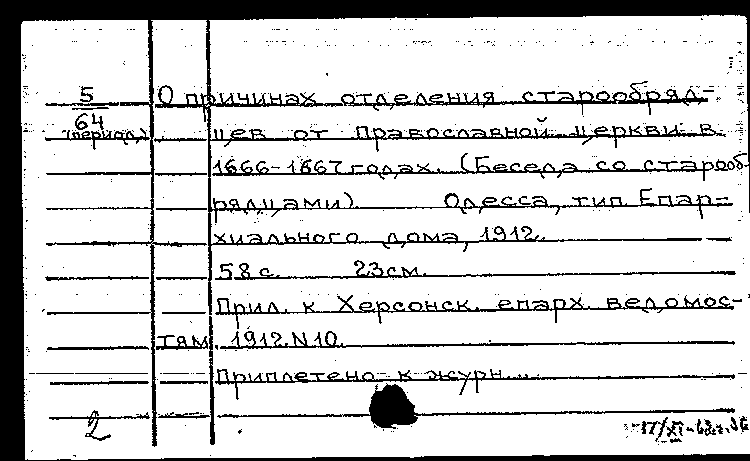 5 О причинах отделения старообряд-
64
(период.) цев от Православной церкви в
1666-1667 годах. (Беседа со старооб-
рядцами) Одесса, тип. Епар=
хиального дома, 1912.
58 с. 23см.
Прил. к Херсонск. епарх. ведомос-
тям. 1912. N10.
Приплетено к журн...
2